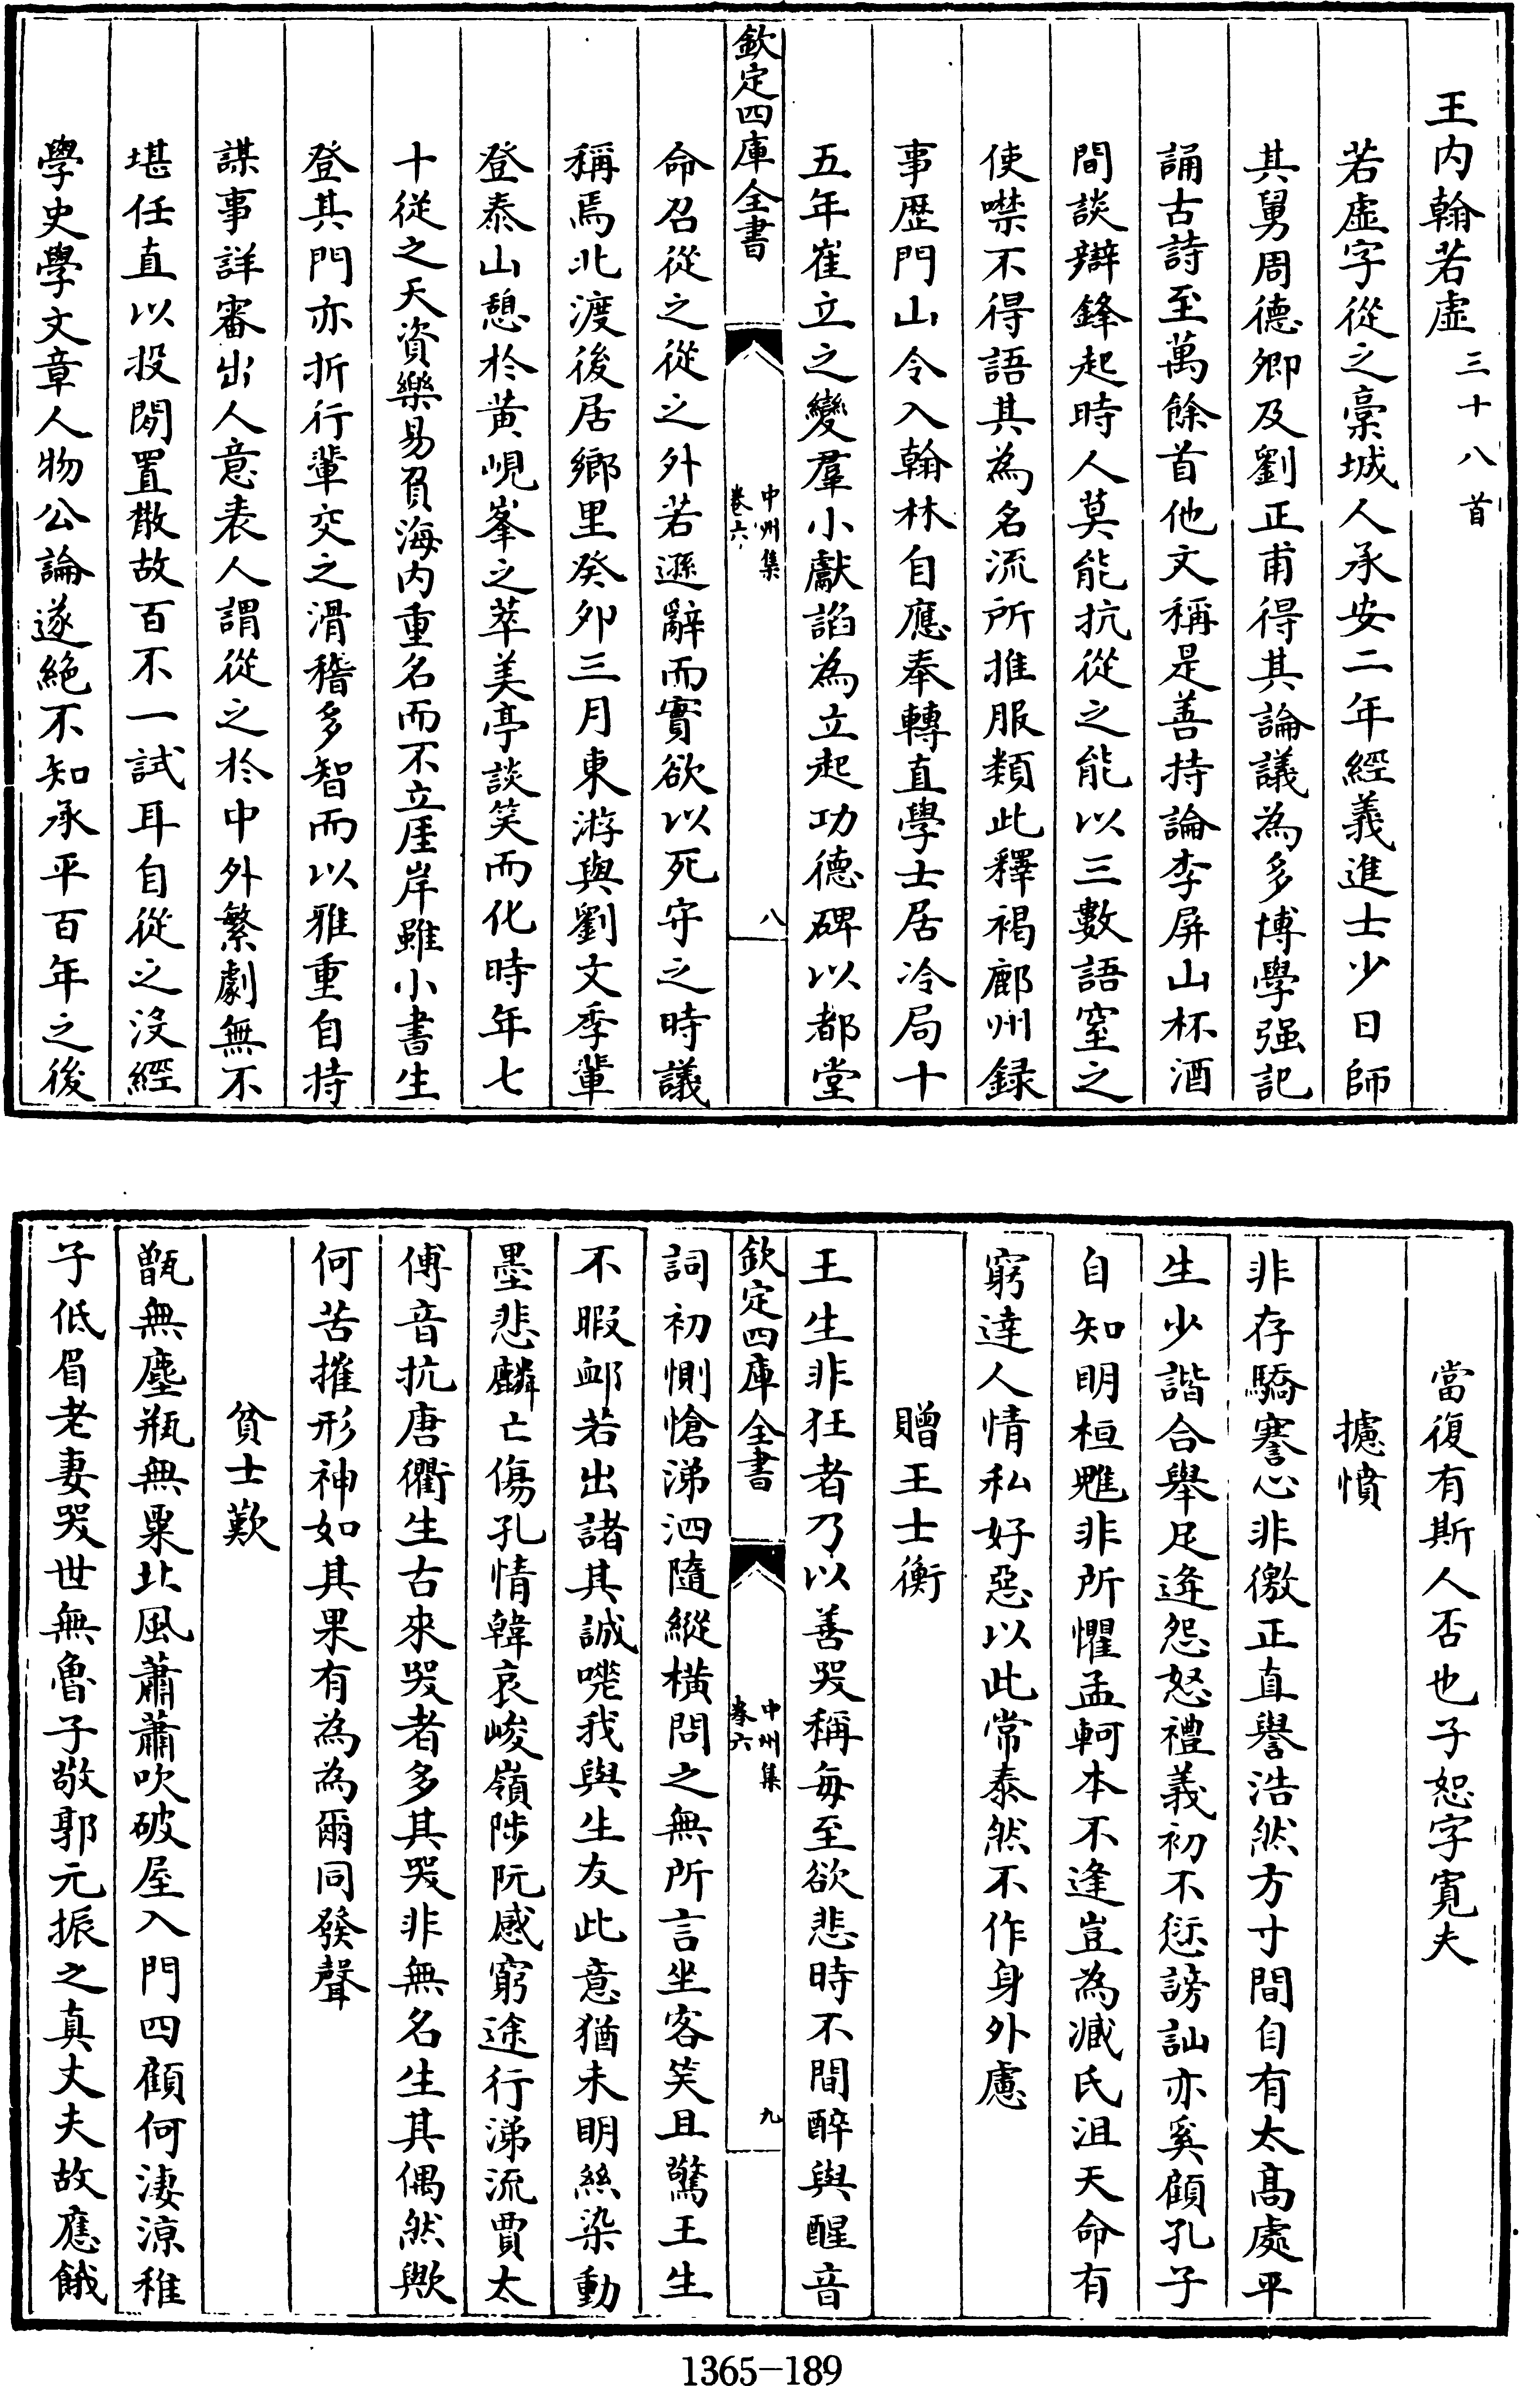 王内翰若虛三十八首
若虛字從之藁城人承安二年經義進士少日師
其舅周德卿及劉正甫得其論議為多博學强記
誦古詩至萬餘首他文稱是善持論李屏山杯酒
間談辯鋒起時人莫能抗從之能以三數語窒之
使噤不得語其為名流所推服類此釋褐鄜州録
事歴門山令入翰林自應奉轉直學士居冷局十
五年崔立之變羣小獻諂為立起功德碑以都堂
欽定四庫全書
中州集
卷六
八
命召從之從之外若遜辭而實欲以死守之時議
稱焉北渡後居鄉里癸夘三月東游與劉文季輩
登泰山憩於黄峴峯之萃美亭談笑而化時年七
十從之天資樂易負海内重名而不立崖岸雖小書生
登其門亦折行輩交之滑稽多智而以雅重自持
謀事詳審出人意表人謂從之於中外繁劇無不
堪任直以投閒置散故百不一試耳自從之没經
學史學文章人物公論遂絶不知承平百年之後
當復有斯人否也子恕字寛夫
攄憤
非存驕謇心非徼正直譽浩然方寸間自有太髙處平
生少諧合舉足逢怨怒禮義初不愆謗訕亦奚顧孔子
自知明桓魋非所懼孟軻本不逢豈為臧氏沮天命有
窮達人情私好惡以此常泰然不作身外慮
贈王士衡
王生非狂者乃以善哭稱每至欲悲時不間醉與醒音
欽定四庫全書
中州集
卷六
九
詞初惻愴涕泗隨縱橫問之無所言坐客笑且驚王生
不暇卹若出諸其誠嘵我與生友此意猶未明絲染動
墨悲麟亡傷孔情韓哀峻嶺陟阮感窮途行涕流賈太
傅音抗唐衢生古來哭者多其哭非無名生其偶然歟
何苦摧形神如其果有為為爾同發聲
貧士歎
甑無塵瓶無粟北風蕭蕭吹破屋入門四顧何淒涼稚
子低眉老妻哭世無魯子敬郭元振之真丈夫故應餓
1365-189